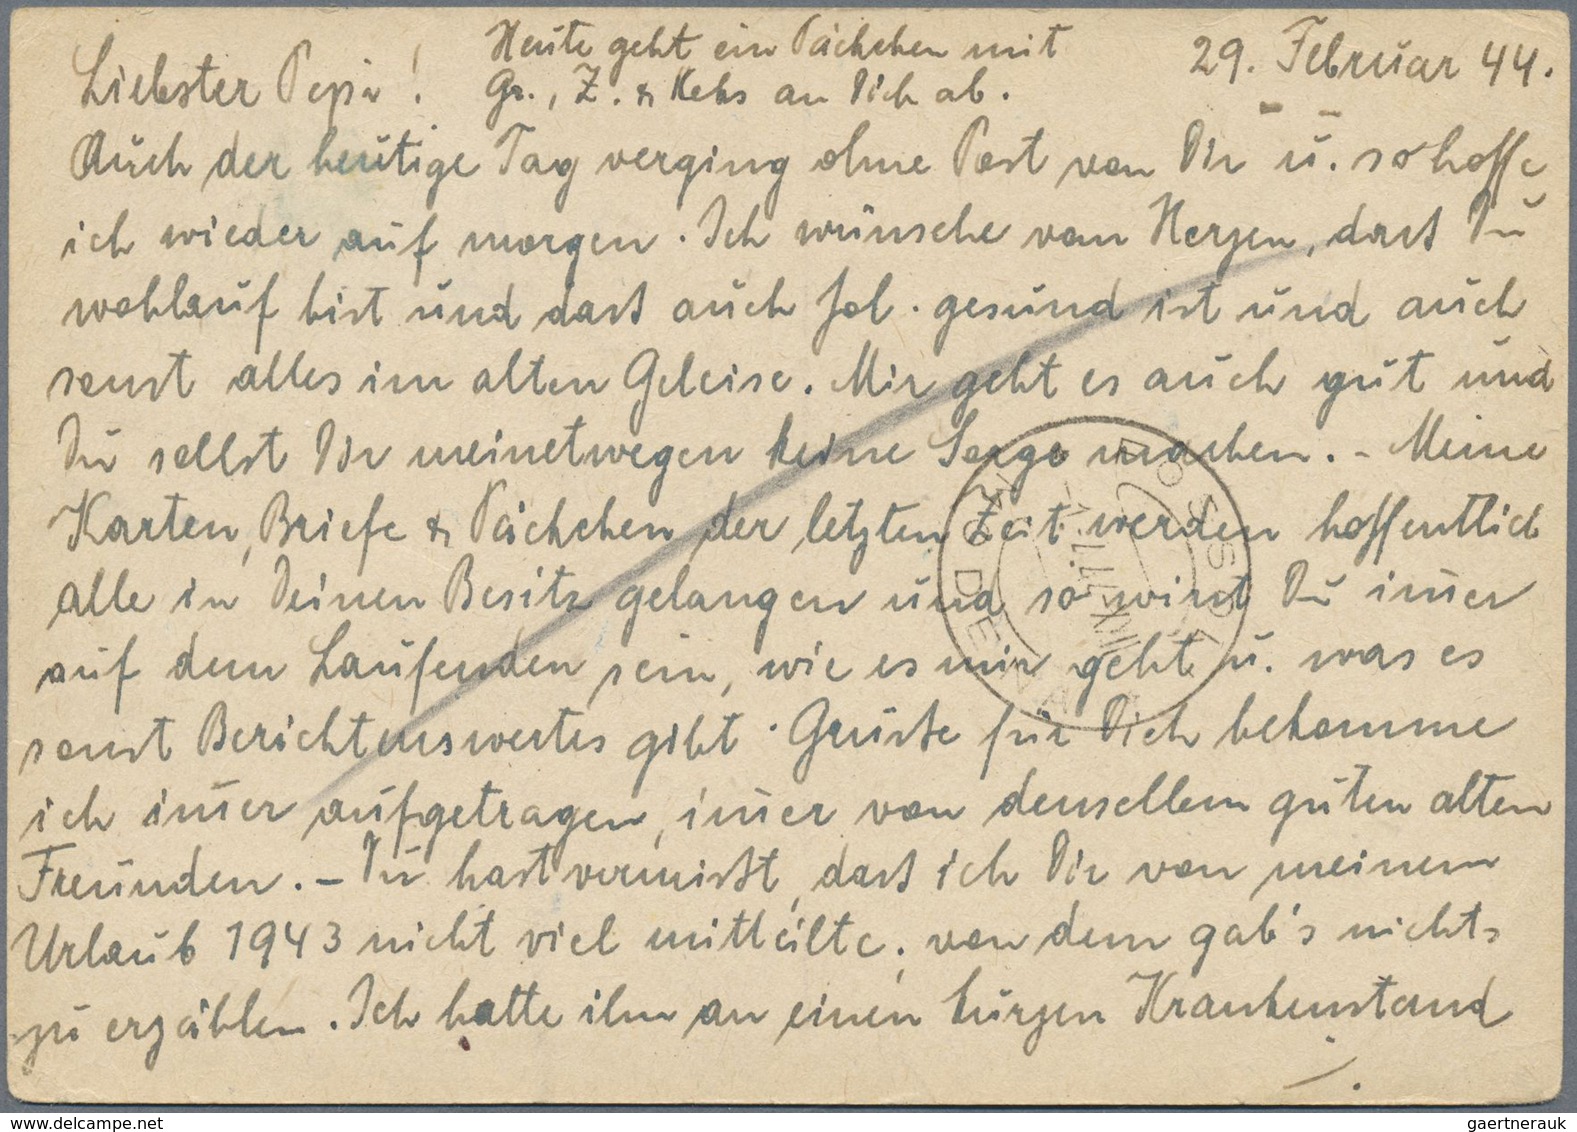 Heute geht ein Päckchen mit
Gr., Z. & Keks an Dich ab.
29. Februar 44.
Liebster Pepi!
Auch der heutige Tag verging ohne Post von Dir u. so hoffe
ich wieder auf morgen. Ich wünsche von Herzen, dass Du
wohlauf bist und dass auch Jol. gesund ist und auch
sonst alles im alten Geleise. Mir geht es auch gut und
Du sollst Dir meinetwegen keine Sorge machen. - Meine
Karten, Briefe & Päckchen der letzten Zeit werden hoffentlich
alle in Deinen Besitz gelangen und so wirst Du im̄er
auf dem Laufenden sein, wie es mir geht u. was es
sonst Berichtenswertes gibt. Grüsse für Dich bekomme
ich im̄er aufgetragen, im̄er von denselben guten alten
Freunden. - Du hast vermisst, dass ich Dir von meinem
Urlaub 1943 nicht viel mitteilte; von dem gab's nichts
zu erzählen. Ich hatte ihn an einen kurzen Krankenstand
./.
gaertnerauk